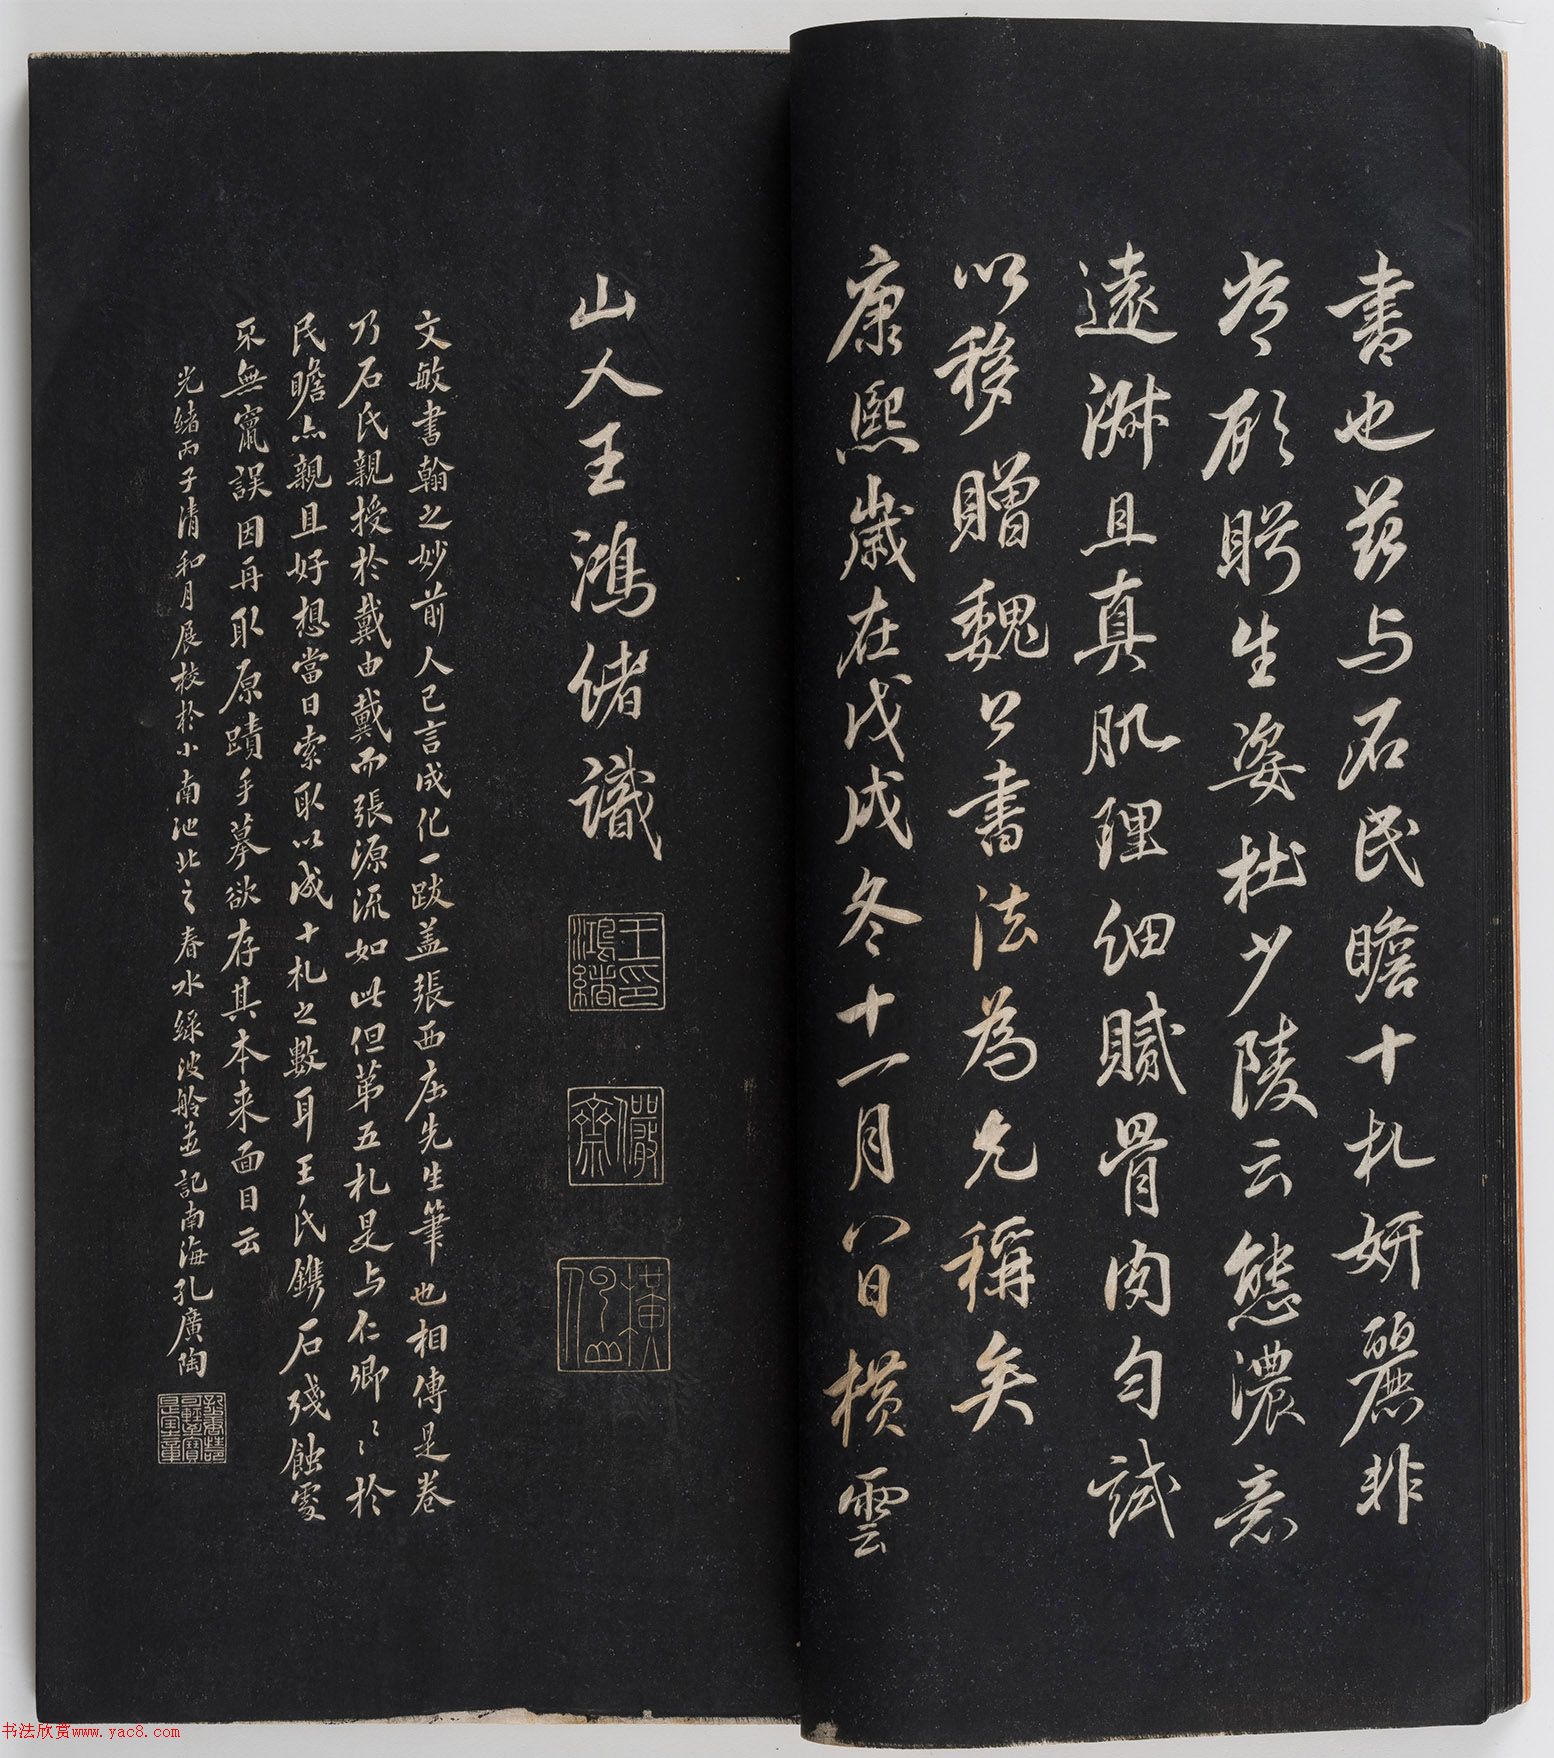 書也茲与石民瞻十札妍麗非
常顧眄生姿杜少陵云態濃意
遠淋且真肌理細膩骨肉勻誠
以移贈魏公書法為允稱矣
康熙歲在戊戌冬十一月八日横雲
山人王鴻緒識
王印鴻緒
儼齋
文敏書翰之妙前人已言成化一跋盖張西庄先生筆也相傳是卷
乃石氏親授於戴由戴而張源流如此但第五札是与仁卿〻於
民瞻亦親且好想當日索取以成十札之數耳王氏鐫石殘蝕處
不無寬誤因再取原蹟手摹欲存其本来面目云
光緒丙子清和月展校於小南池北之春水綠波舲並記南海孔廣陶
书法欣赏www.yac8.com